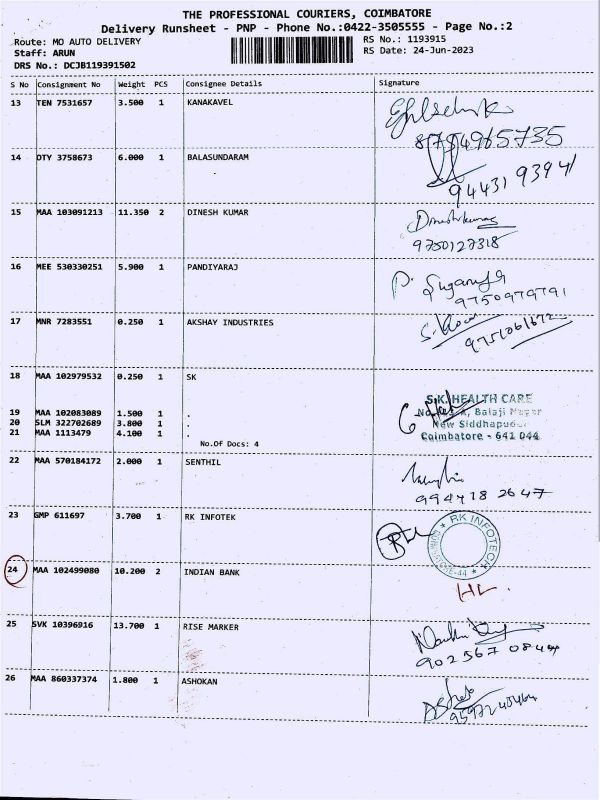 THE PROFESSIONAL COURIERS, COIMBATORE
Delivery Runsheet - PNP - Phone No.:0422-3505555 - Page No.:2
Route: MO AUTO DELIVERY RS No.: 1193915
Staff: ARUN RS Date: 24-Jun-2023
DRS No.: DCJB119391502
S No Consignment No Weight PCS Consignee Details Signature
13 TEN 7531657 3.500 1 KANAKAVEL
8754965735
14 OTY 3758673 6.000 1 BALASUNDARAM
94431 9394
15 MAA 103091213 11.350 2 DINESH KUMAR Dineshkumar
9750127318
16 MEE 530330251 5.900 1 PANDIYARAJ P.
9750979791
17 MNR 7283551 0.250 1 AKSHAY INDUSTRIES
9751061672
18 MAA 102979532 0.250 1 SK
S.K. HEALTH CARE
19 MAA 102083089 1.500 1 . Balaji Nagar
20 SLM 322702689 3.800 1 . New Siddhapudur
21 MAA 1113479 4.100 1 . Coimbatore - 641 044
No.Of Docs: 4
22 MAA 570184172 2.000 1 SENTHIL
994418 2647
23 GMP 611697 3.700 1 RK INFOTEK
RK INFOTECH
24 MAA 102499080 10.200 2 INDIAN BANK
25 SVK 10396916 13.700 1 RISE MARKER
902567 0844
26 MAA 860337374 1.800 1 ASHOKAN